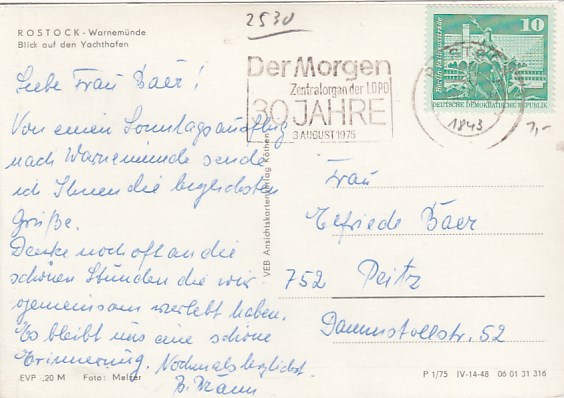 ROSTOCK - Warnemünde
Blick auf den Yachthafen
2530
Der Morgen
Zentralorgan der LDPD
30 JAHRE
3 AUGUST 1975
10
DEUTSCHE DEMOKRATISCHE REPUBLIK
1843
1,-
Liebe Frau Baer!
Von einen Sonntagsausflug
nach Warnemünde sende
ich Ihnen die herzlichsten
Grüße.
Denke noch oft an die
schönen Stunden die wir
gemeinsam verlebt haben.
Es bleibt uns eine schöne
Erinnerung. Nochmals herzlichst
B. Braun
VEB Ansichtskartenverlag Köthen
Frau
Elfriede Baer
752 Peitz
Dammstollstr. 52
EVP -,20 M Foto: Melzer
P 1/75 IV-14-48 06 01 31 316